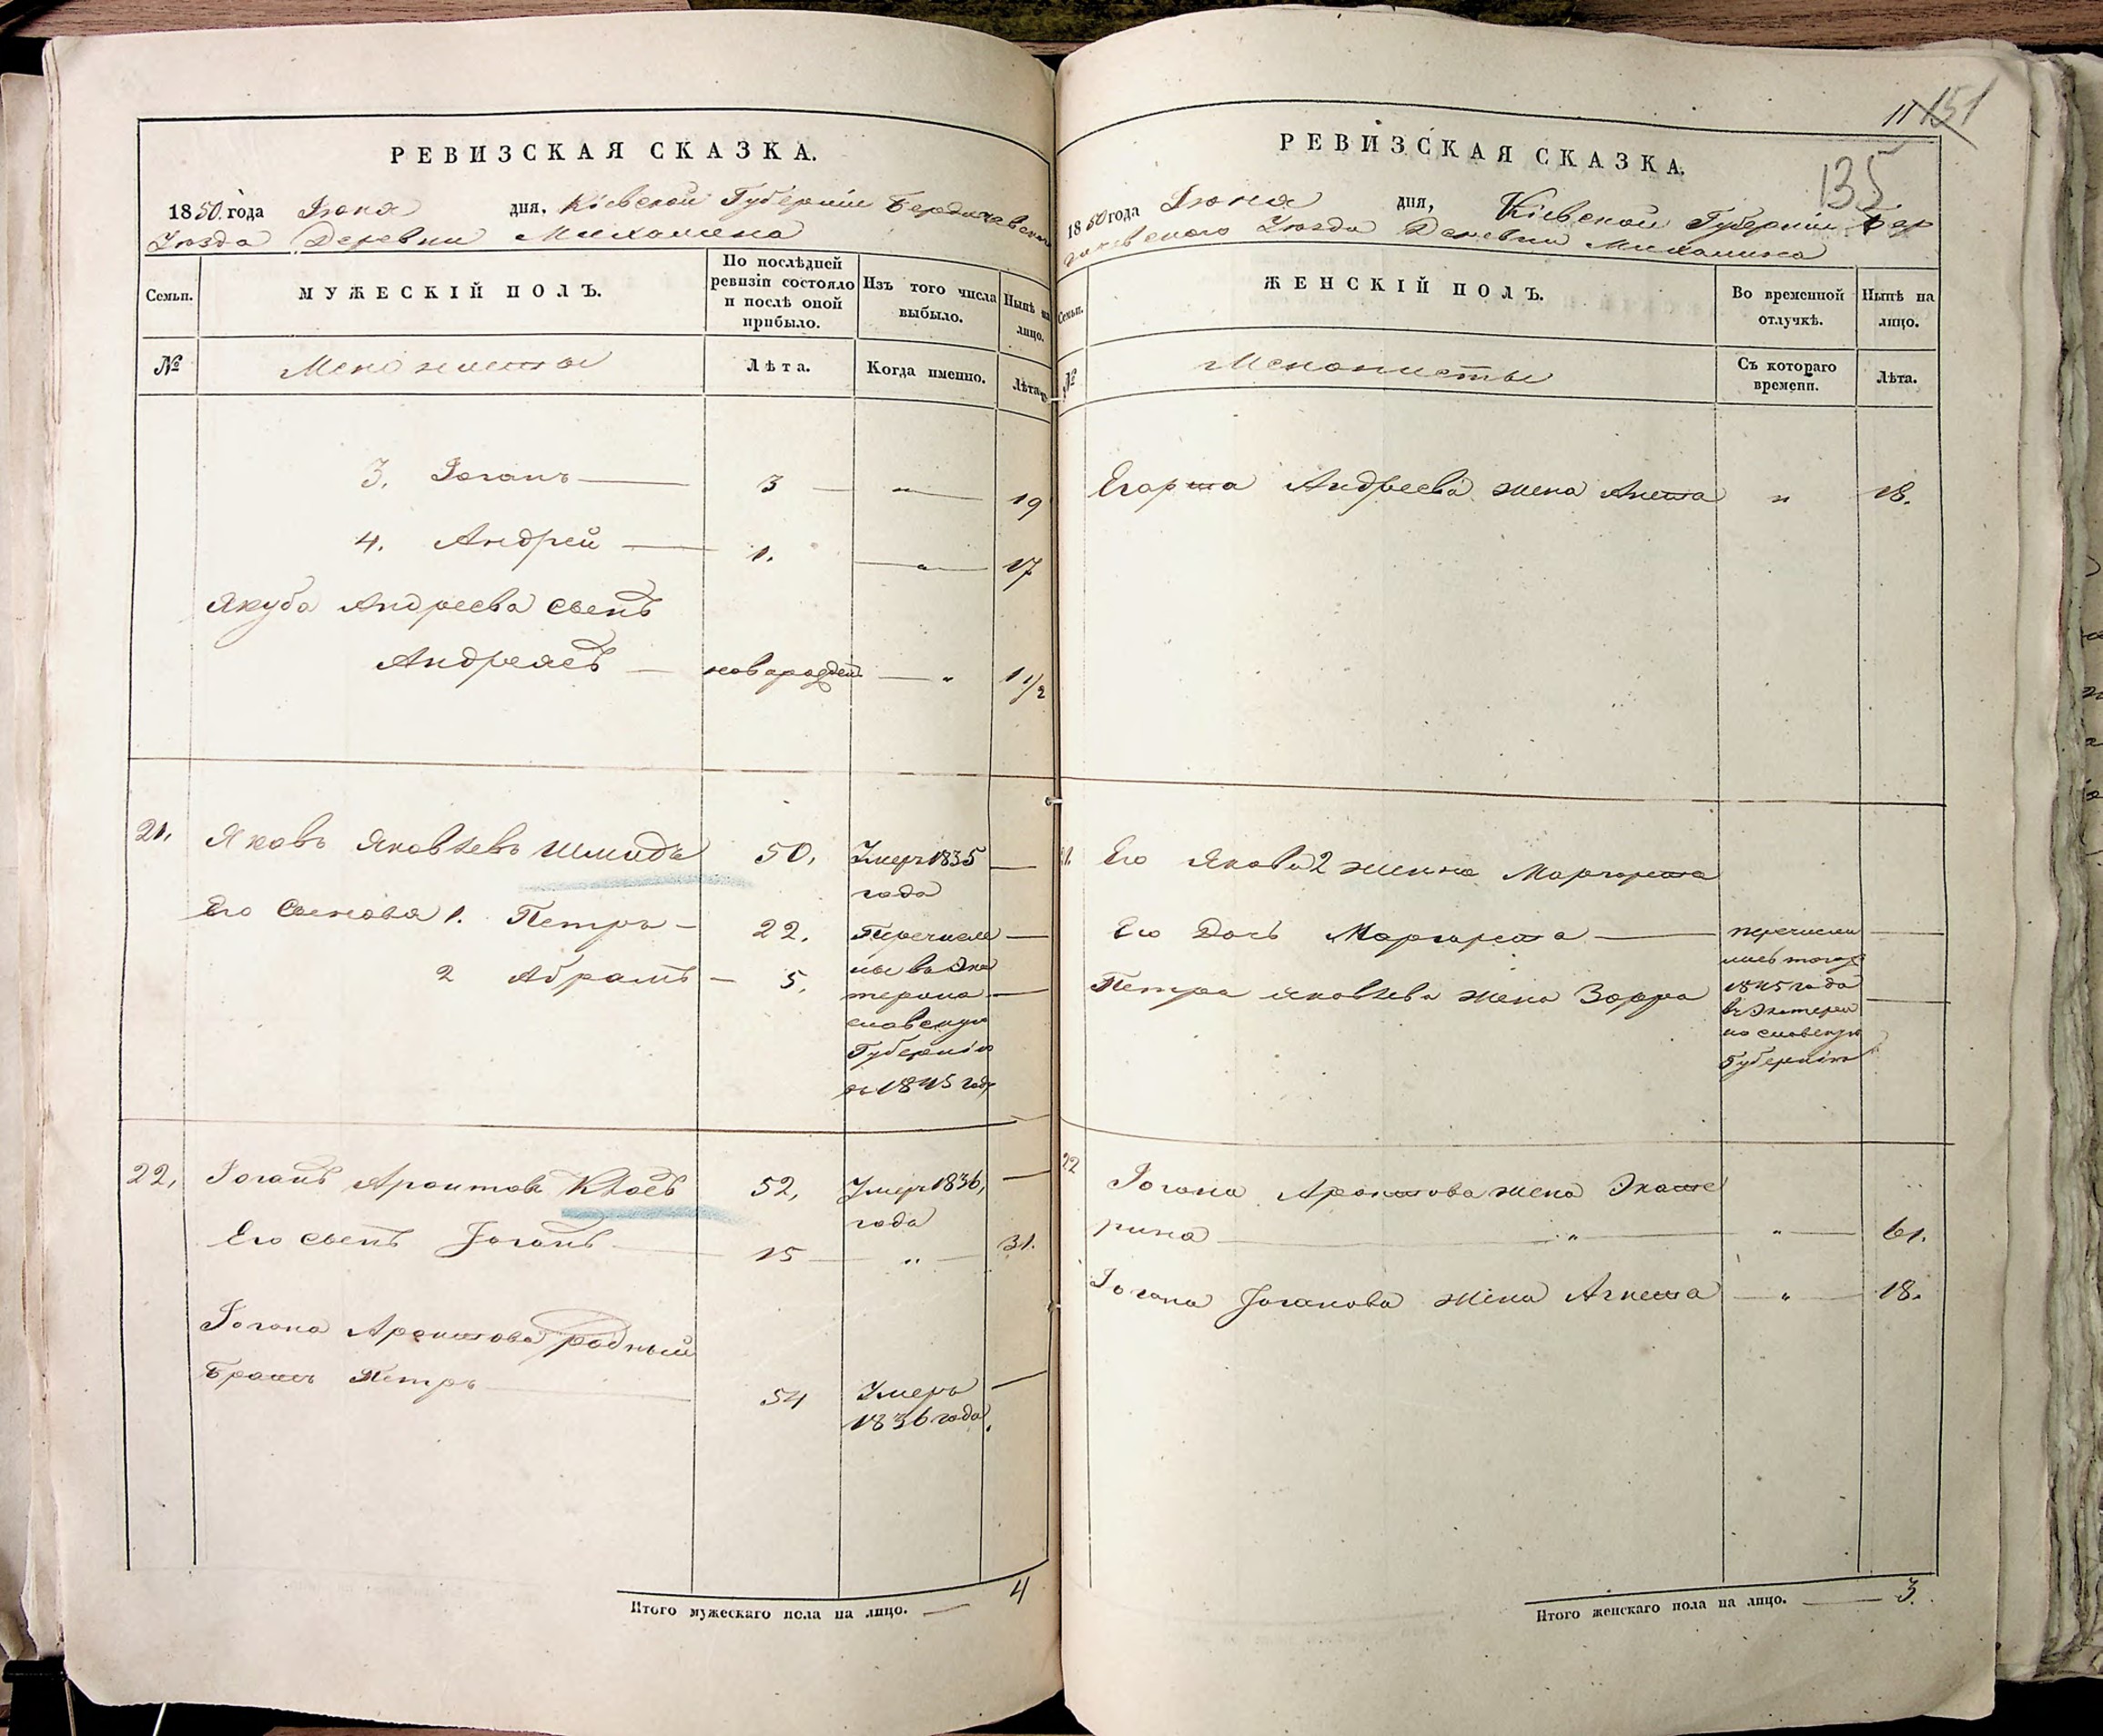 РЕВИЗСКАЯ СКАЗКА.
1850. года Іюня дня, Кіевской Губерніи Бердичевскаго
Уѣзда Деревни Михалина
Семьи.
МУЖЕСКІЙ ПОЛЪ.
По послѣдней ревизіи состояло и послѣ оной прибыло.
Изъ того числа выбыло.
Нынѣ на лицо.
№
Менонисты
Лѣта.
Когда именно.
Лѣта.
3. Іоганъ — 3 — " — 19
4. Андрей — 1. — " — 17
Якуба Андреева сынъ
Андреасъ — новорожден — " 1 1/2
21. Яковъ Яковлевъ Шмидъ 50. Умеръ 1835 —
года
Его Сынова 1. Петръ — 22. Перечисле —
2 Абрамъ — 5. ны въ Эка
терино —
славскую
Губернію
въ 1845 году
22. Іоганъ Арантовъ Клаѣ 52. Умеръ 1836, —
года
Его сынъ Іоганъ — 15 — " — 31.
Іогана Арантова родный
Братъ Петръ — 54 Умеръ —
1836 года.
Итого мужескаго пола на лицо. — 4
11 151
135
РЕВИЗСКАЯ СКАЗКА.
1850 года Іюня дня, Кіевской Губерніи Бер
дичевскаго Уѣзда Деревни Михалина
Семьи.
ЖЕНСКІЙ ПОЛЪ.
Во временной отлучкѣ.
Нынѣ на лицо.
№
Менонисты
Съ котораго времени.
Лѣта.
Андреева жена Анета " 18.
21. Его Якова 2 жена Маргарета
Его Дочь Маргарета — перечисли —
лись тогож
Петра Яковлева жена Зарра 1845 года —
въ Екатери
но славскую
Губернію
22 Іогана Арантова жена Экате
рина — " — " — 61.
Іогана Іоганова жена Агнета — " — 18.
Итого женскаго пола на лицо. — 3.